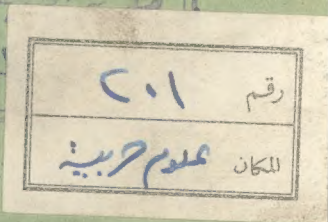 رقم ٢٠١
للمكان علوم حربية